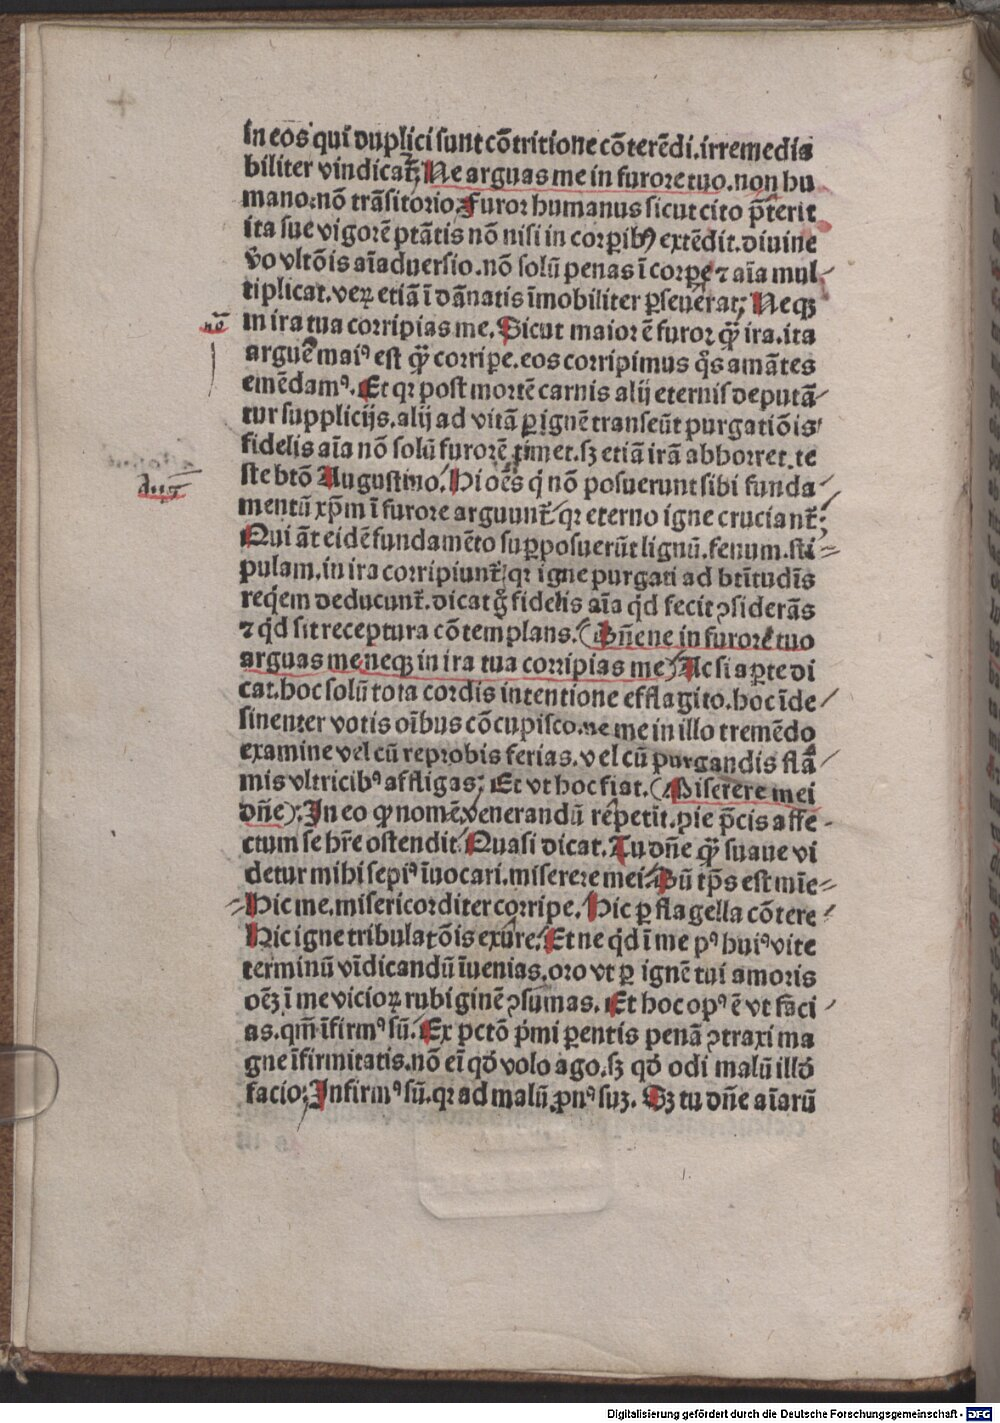 in eos qui duplici sunt cōtritione cōterēdi. irremedia
biliter vindicat̄; Ne arguas me in furore tuo. non hu
mano: nō trāsitorio; Furor humanus sicut cito p̄terit
ita sue vigorē ptātis nō nisi in corꝑibꝰ extēdit. diuine
v̄o vltōis aīaduersio. nō solū penas ī corꝑe ⁊ aīa mul
tiplicat. veꝝ etiā ī dānatis īmobiliter ꝑseuerat; Neqꝫ
in ira tua corripias me. Sicut maior ē furor q̄ꝫ ira. ita
arguē maiꝰ est q̄ꝫ corriꝑe. eos corripimus q̄s amātes
emēdamꝰ. Et qꝛ post mortē carnis alij eternis deputā
tur supplicijs. alij ad vitā ꝑ ignē transeūt purgatiōis
fidelis aīa nō solū furorē timet. sꝫ etiā irā abhorret. te
nō
ste btō Augustino. Hi oēs q̇ nō posuerunt sibi funda
Aug
mentū xp̄m ī furore arguunt̄ qꝛ eterno igne cruciant̄;
Qui āt eidē fundamēto suꝑposuerūt lignū. fenum. sti
pulam. in ira corripiunt̄. qꝛ igne purgati ad btītudīs
req̇em deducunt̄. dicat ḡ fidelis aīa q̇d fecit ꝯsiderās
⁊ q̇d sit receptura cōtemplans. (Dn̄e ne in furore tuo
arguas me neqꝫ in ira tua corripias me) Ac si aꝑte di
cat. hoc solū tota cordis intentione efflagito. hoc īde
sinenter votis oībus cōcupisco. ne me in illo tremēdo
examine vel cū reprobis ferias. vel cū purgandis flā
mis vltricibꝰ affligas; Et vt hoc fiat. (Miserere mei
dn̄e). In eo ꝙ nomē venerandū repetit. pie p̄cis affe
ctum se hr̄e ostendit. Quasi dicat. Tu dn̄e q̄ꝫ suaue vi
detur mihi sepiꝰ īuocari. miserere mei. Dū tp̄s est mīe
Hic me. misericorditer corripe. Hic ꝑ flagella cōtere
Hic igne tribulatōis exure. Et ne q̇d ī me pꝰ huiꝰ vite
terminū vīdicandū īuenias. oro vt ꝑ ignē tui amoris
oēꝫ ī me vicioꝝ rubiginē ꝯsumas. Et hoc opꝰ ē vt faci
as. qm̄ īfirmꝰ sū. Ex pctō ṗmi ꝑentis penā ꝯtraxi ma
gne īfirmitatis. nō eī qd̄ volo ago. sꝫ qd̄ odi malū illd̄
facio; Infirmꝰ sū. qꝛ ad malū ꝓnꝰ suꝫ. Sꝫ tu dn̄e aīarū
Digitalisierung gefördert durch die Deutsche Forschungsgemeinschaft - DFG